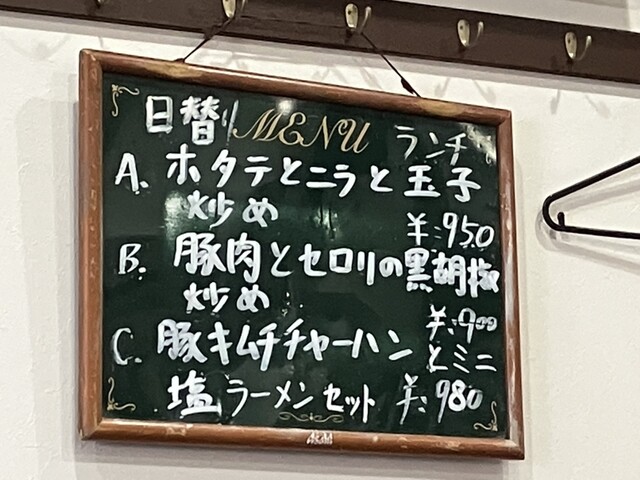 日替り MENU ランチ
A. ホタテとニラと玉子
炒め
¥:950
B. 豚肉とセロリの黒胡椒
炒め
¥:900
C. 豚キムチチャーハンとミニ
塩ラーメンセット ¥:980
Asahi